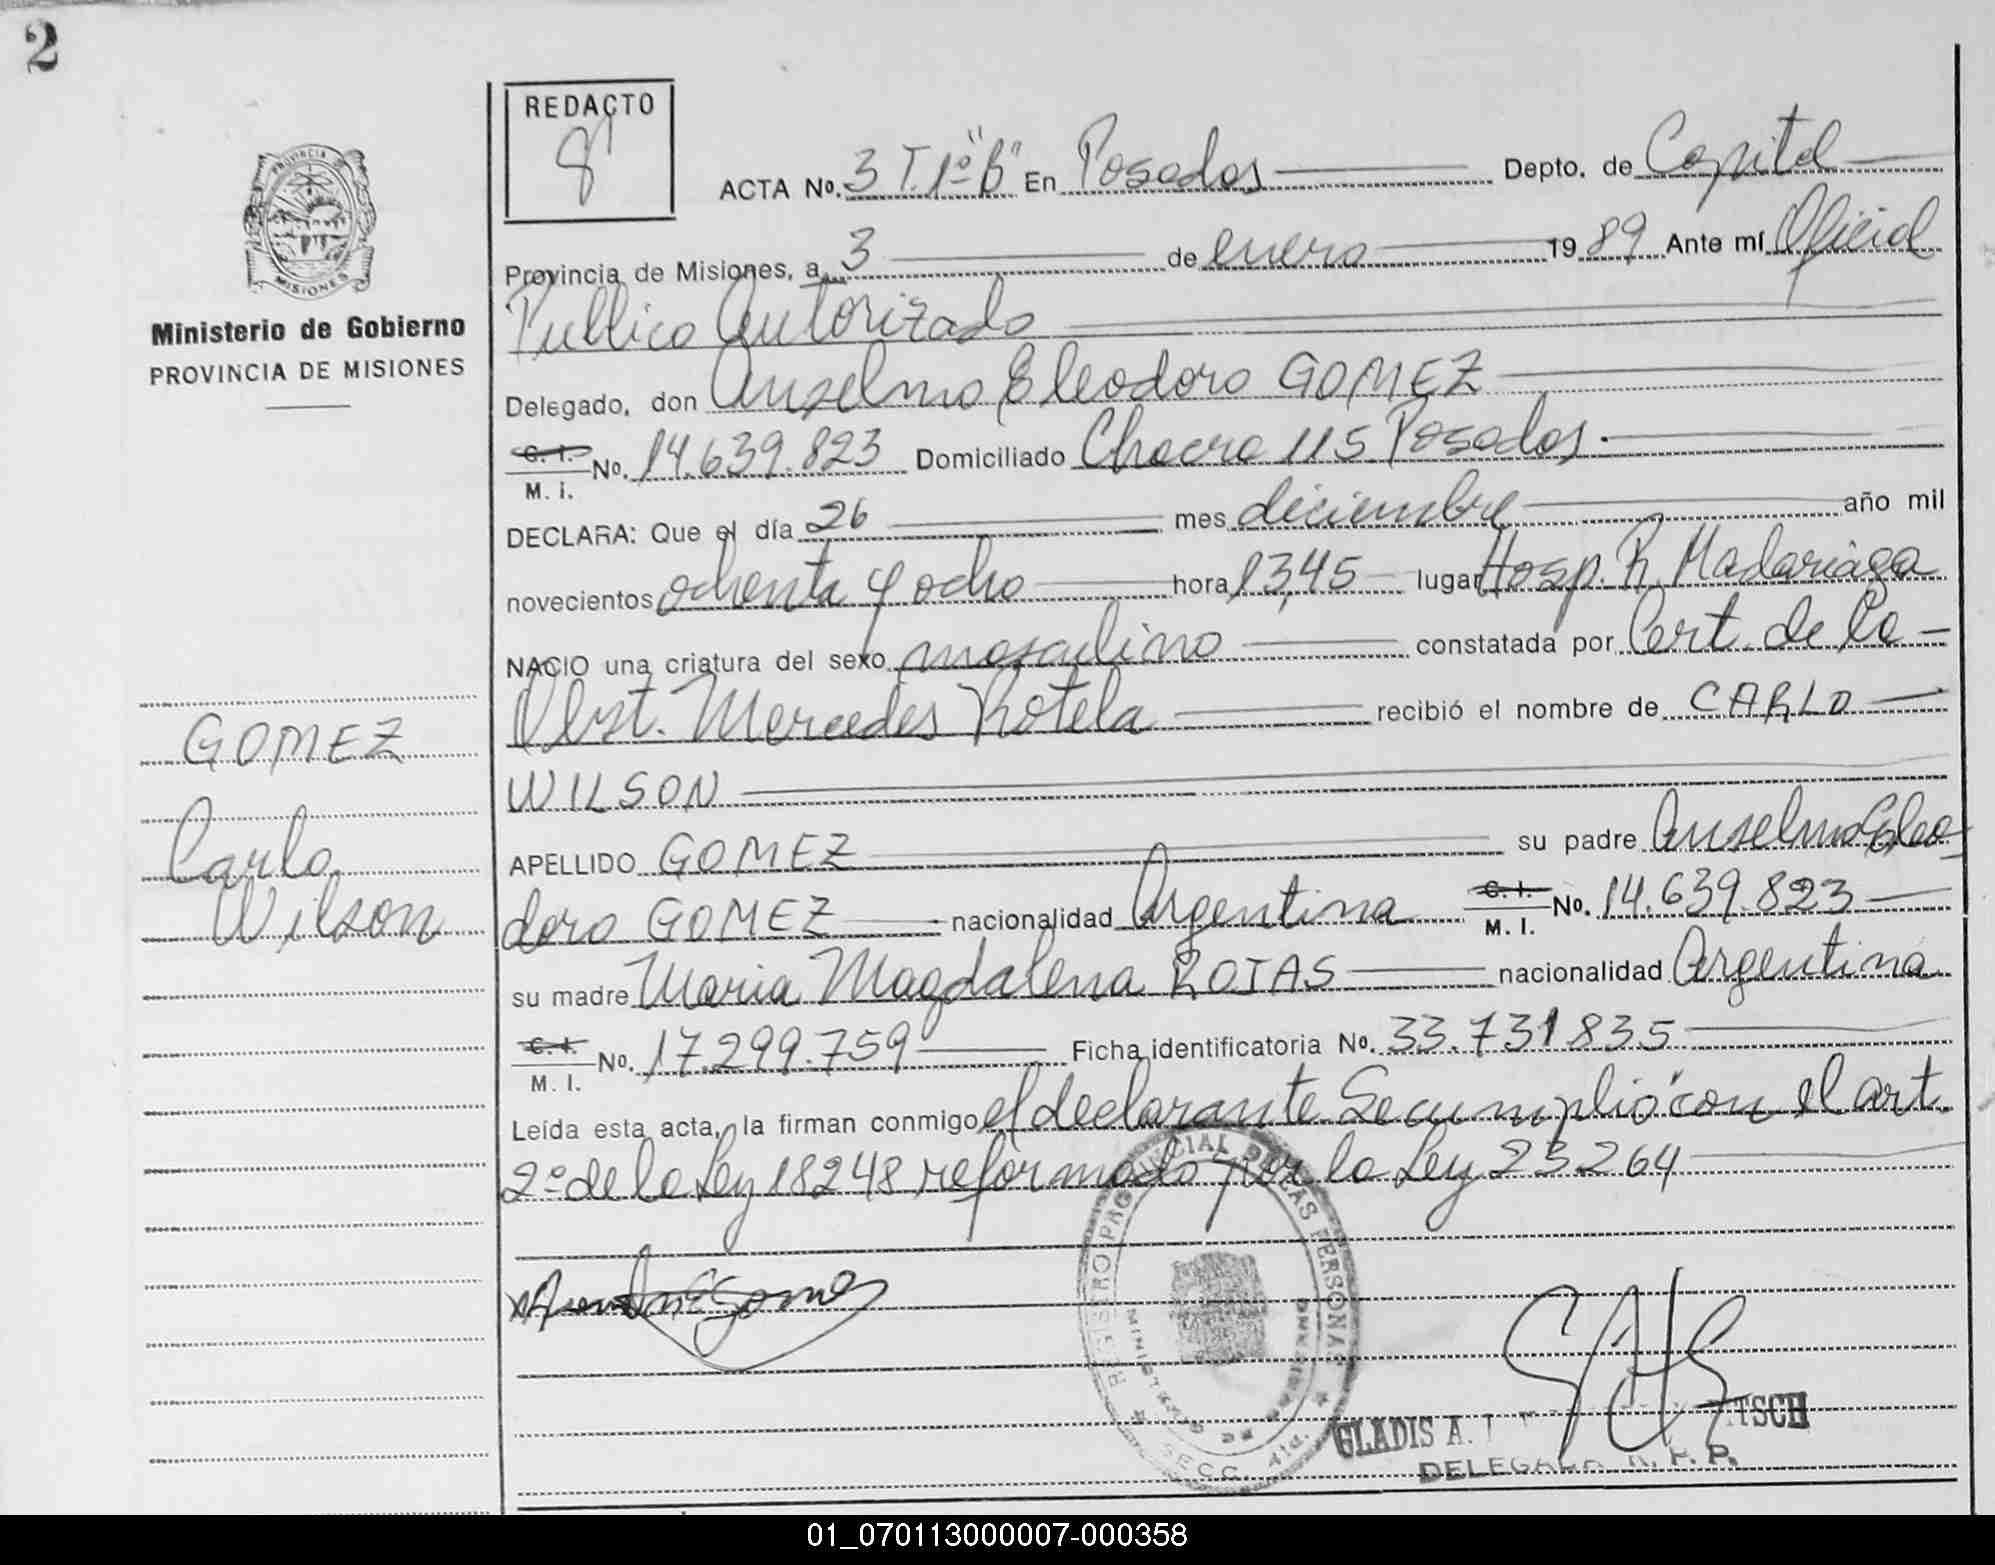 2
PROVINCIA DE
MISIONES
Ministerio de Gobierno
PROVINCIA DE MISIONES
GOMEZ
Carlo
Wilson
REDACTO
ACTA No. 3 T. 1º "B" En Posadas Depto. de Capital
Provincia de Misiones, a 3 de enero 19 89 Ante mí Oficial
Publico Autorizado
Delegado, don Anselmo Eleodoro GOMEZ
C. I.
M. I. No. 14.639.823 Domiciliado Chacra 115 Posadas.
DECLARA: Que el día 26 mes diciembre año mil
novecientos ochenta y ocho hora 13,45 lugar Hosp. R. Madariaga
NACIO una criatura del sexo masculino constatada por Cert. de la
Obst. Mercedes Rotela recibió el nombre de CARLO
WILSON
APELLIDO GOMEZ su padre Anselmo Eleo
doro GOMEZ nacionalidad Argentina C. I.
M. I. No. 14.639.823
su madre Maria Magdalena ROJAS nacionalidad Argentina
C. I.
M. I. No. 17.299.759 Ficha identificatoria No. 33.731835
Leída esta acta, la firman conmigo el declarante Se cumplió con el art.
2º de la Ley 18248 reformado por la Ley 23264
REGISTRO PROVINCIAL DE LAS PERSONAS
SECC. 4ta.
GLADIS A. TSCH
DELEGADA R. P. P.
01_070113000007-000358